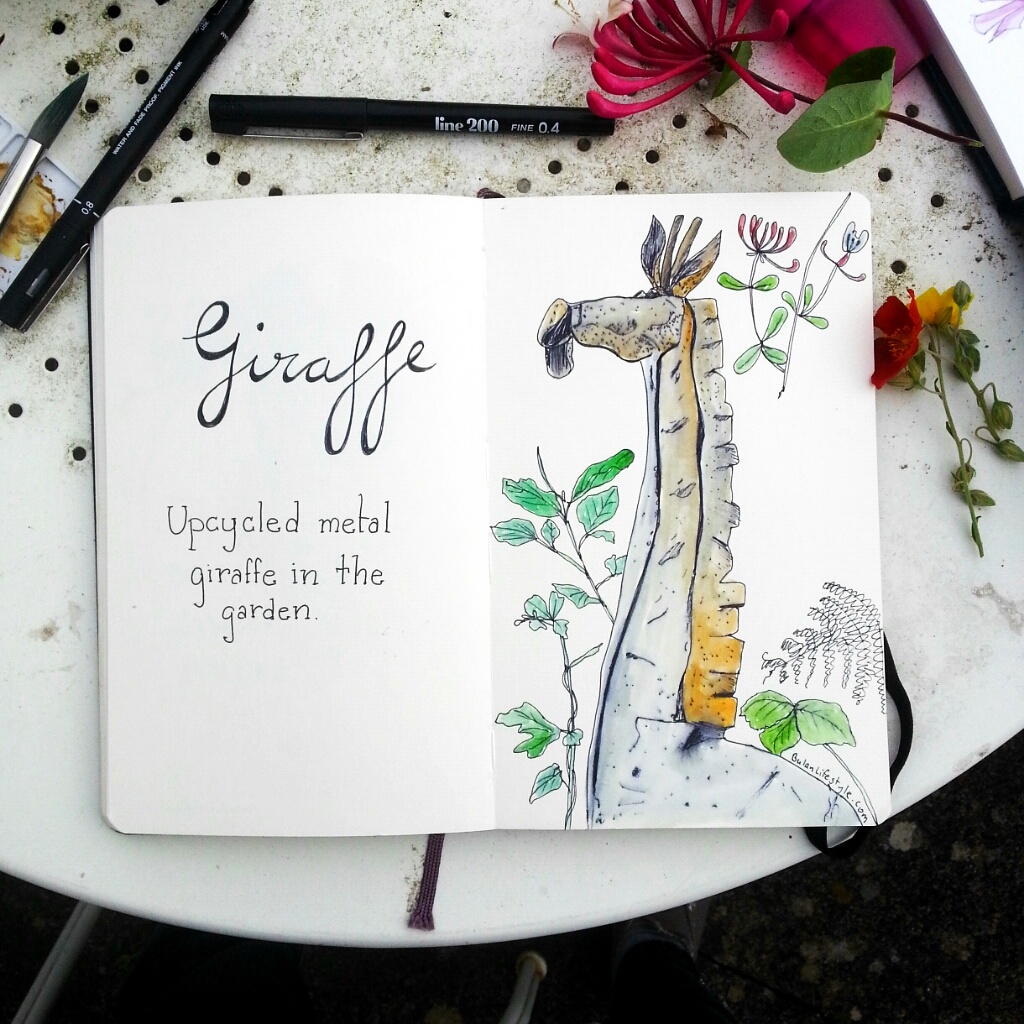 WATER AND FADE PROOF, PIGMENT INK
0.8
line 200 FINE 0.4
Giraffe
Upcycled metal
giraffe in the
garden.
BulanLifestyle.com